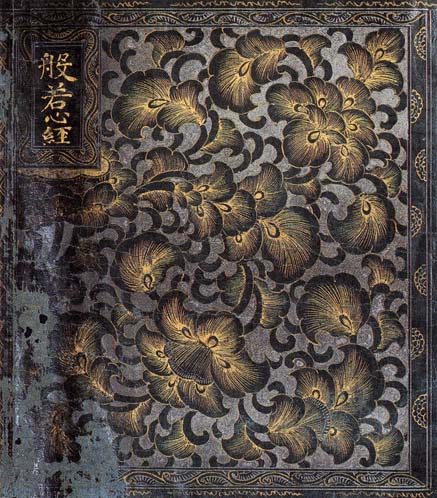 般若心經